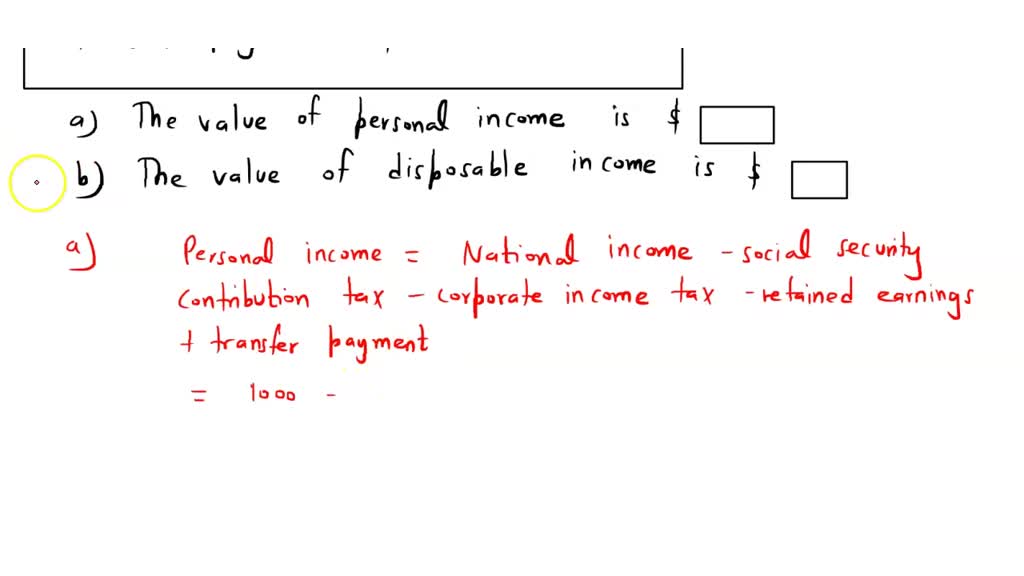 a) The value of personal income is $
b) The value of disposable income is $
a) Personal income = National income - social security
contribution tax - corporate income tax - retained earnings
+ transfer payment
= 1000 -